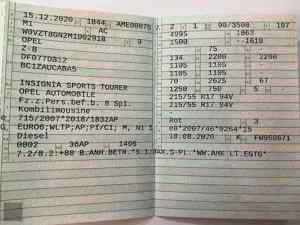 15.12.2020 1844 AME00075
MI AC
W0VZT8GN2M1002918 9
OPEL
Z-B
DF077D332
BC1ZAUCABA5
INSIGNIA SPORTS TOURER
OPEL AUTOMOBILE
Fz.z.Pers.bef.b. 8 Spl.
Kombilimousine
715/2007*2018/1832AP
EURO6;WLTP;AP;PI/CI; M, N1 I
Diesel
0002 36AP 1496
7.2/8.2.+88 B.ANH.BETR.*S.1:MAX.S-PL. *WW.AHK LT.EGTG*
2 1 90/3500 187
4995 -1863
1500 -1510
75
134 2200 2290
1105 1105
1105 1105
70 2625 67
1250 750 5
215/55 R17 94V
215/55 R17 94V
Rot 3
10.08.2020 K